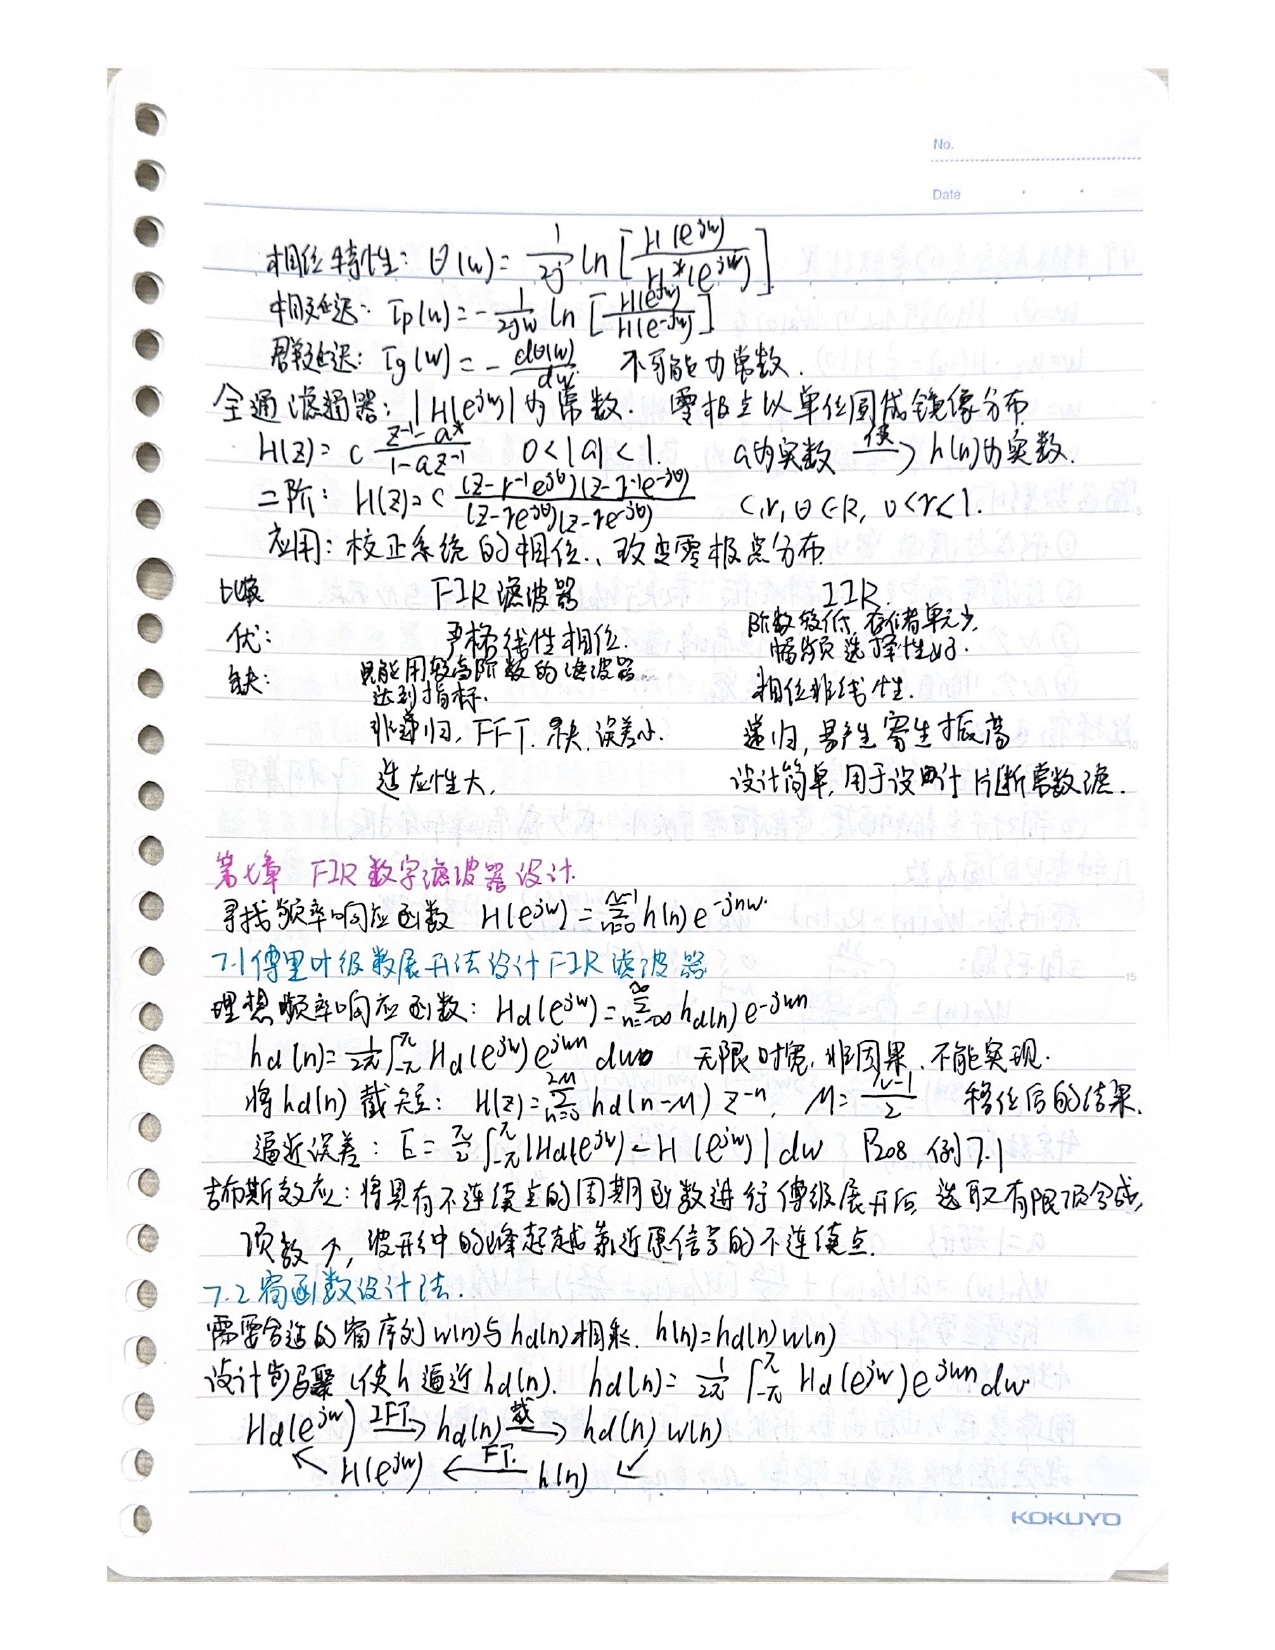 No.
Date
相位特性: θ(w) = 1/2j ln [H(e^jw) / H*(e^jw)]
相延迟: τp(w) = - 1/2jw ln [H(e^jw) / H(e^-jw)]
群延迟: τg(w) = - dθ(w)/dw 不可能为常数.
全通滤通器: |H(e^jw)|为常数. 零极点以单位圆成镜像分布
H(z) = c (z^-1 - a*)/(1 - az^-1) 0<|a|<1. a为实数 使→ h(n)为实数.
二阶: H(z) = c (z-r^-1e^jθ)(z-r^-1e^-jθ) / (z-re^jθ)(z-re^-jθ) c,r,θ∈R, 0<r<1.
应用: 校正系统的相位., 改变零极点分布
比较 FIR滤波器 IIR.
优: 严格线性相位. 阶数较低, 存储单元少,
幅频选择性好.
缺: 只能用较高阶数的滤波器 相位非线性.
达到指标.
非递归, FFT. 快, 误差小. 递归, 易产生寄生振荡
适应性大, 设计简单, 用于设计片断常数滤.
第七章 FIR数字滤波器设计.
寻找频率响应函数 H(e^jw) = Σ_{n=0}^{N-1} h(n) e^-jnw.
7.1 傅里叶级数展开法设计FIR滤波器
理想频率响应函数: Hd(e^jw) = Σ_{n=-∞}^{∞} hd(n) e^-jwn
hd(n) = 1/2π ∫_{-π}^{π} Hd(e^jw) e^jwn dw 无限时宽, 非因果, 不能实现.
将hd(n)截短: H(z) = Σ_{n=0}^{2M} hd(n-M) z^-n, M = (N-1)/2 移位后的结果.
逼近误差: E = π/2 ∫_{-π}^{π} |Hd(e^jw) - H(e^jw)| dw P208 例7.1
吉布斯效应: 将具有不连续点的周期函数进行傅级展开后, 选取有限项合成,
项数↑, 波形中的峰起越靠近原信号的不连续点.
7.2 窗函数设计法.
需要合适的窗序列w(n)与hd(n)相乘. h(n)=hd(n)w(n)
设计步骤 (使h逼近hd(n). hd(n) = 1/2π ∫_{-π}^{π} Hd(e^jw) e^jwn dw.
Hd(e^jw) IFT→ hd(n) 截→ hd(n) w(n)
↖ H(e^jw) ←FT. h(n) ↙
KOKUYO